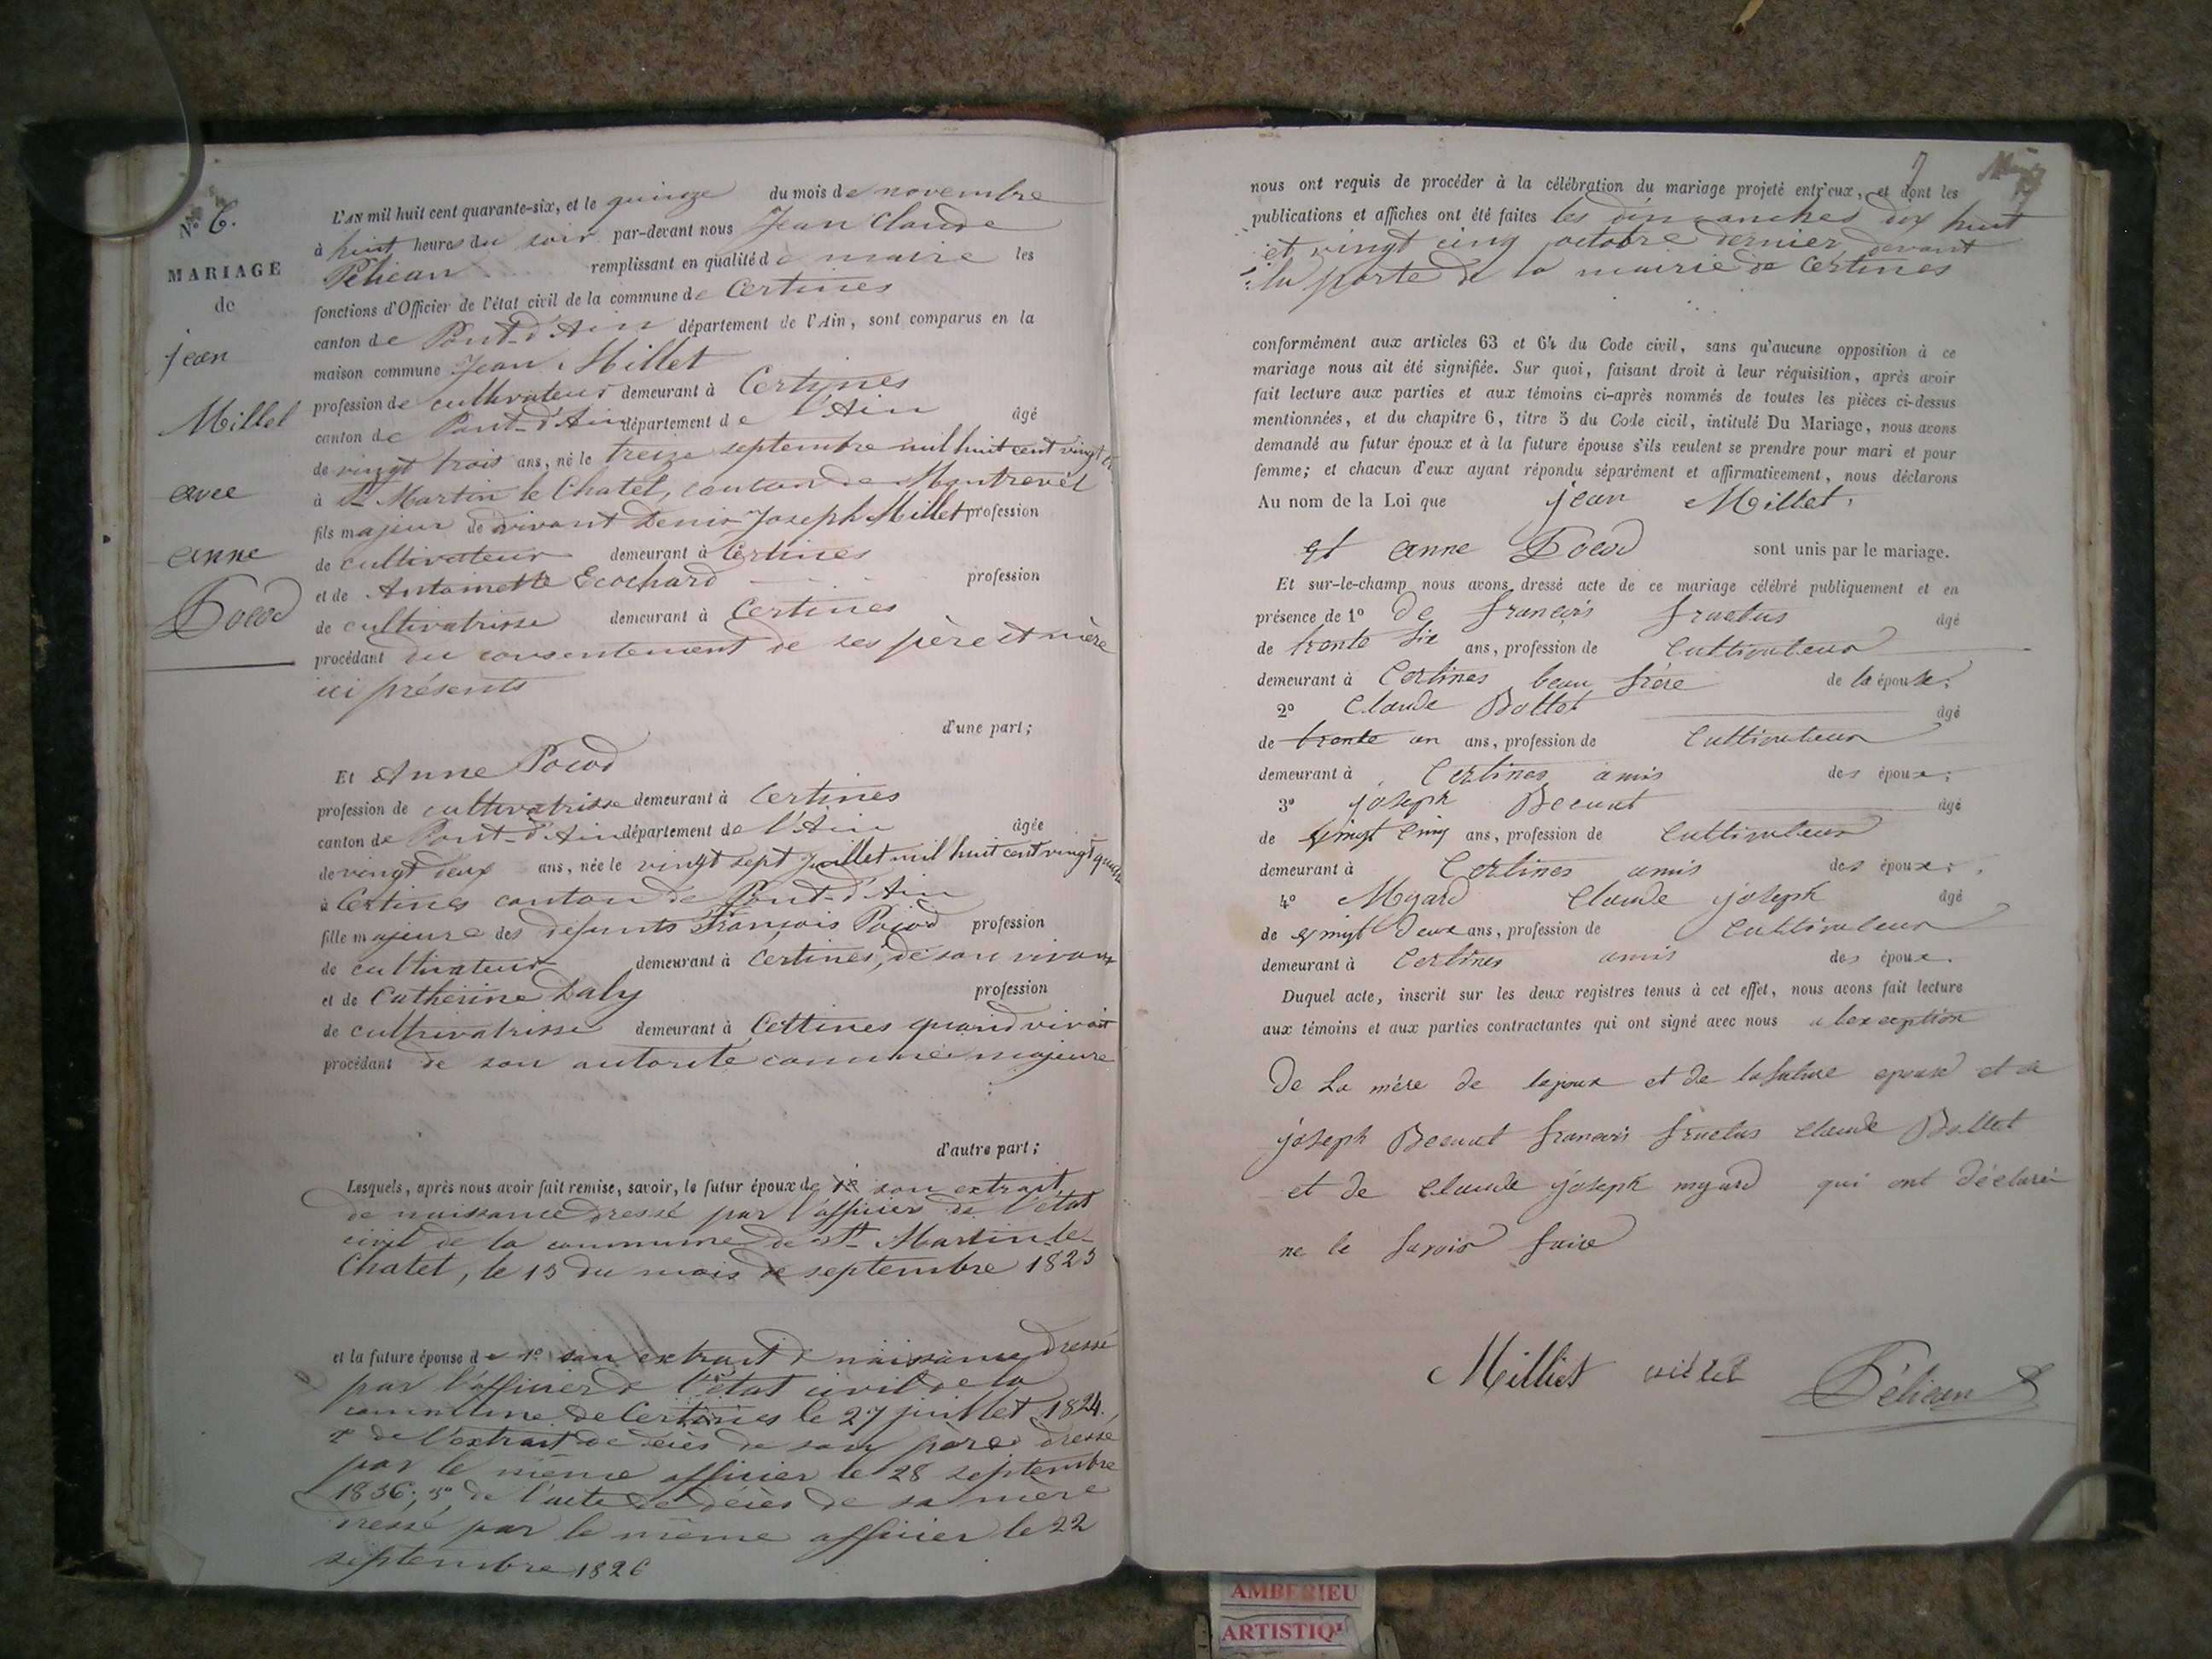 N° 6.
MARIAGE
de
jean
Millet
avec
anne
Pocod
L'AN mil huit cent quarante-six, et le quinze du mois de novembre
à huit heures du soir par-devant nous Jean Claude
Pélican remplissant en qualité de maire les
fonctions d'Officier de l'état civil de la commune de Certines
canton de Pont-d'Ain département de l'Ain, sont comparus en la
maison commune Jean Millet
profession de cultivateur demeurant à Certines
canton de Pont-d'Ain département de l'Ain âgé
de vingt trois ans, né le treize septembre mil huit cent vingt
à St Martin le Chatel, canton de Montrevel
fils majeur de vivant Denis Joseph Millet profession
de cultivateur demeurant à Certines
et de Antoinette Ecochard profession
de cultivatrisse demeurant à Certines
procédant du consentement de ses père et mère
ici présents
d'une part;
Et Anne Pocod
profession de cultivatrisse demeurant à Certines
canton de Pont-d'Ain département de l'Ain âgée
de vingt deux ans, née le vingt sept Juillet mil huit cent vingt quatre
à Certines canton de Pont-d'Ain
fille majeure des défunts François Pocod profession
de cultivateur demeurant à Certines, de son vivant
et de Catherine Daly profession
de cultivatrisse demeurant à Certines quand vivait
procédant de son autorité comme majeure
d'autre part;
Lesquels, après nous avoir fait remise, savoir, le futur époux de son extrait
de naissance dressé par l'officier de l'état
civil de la commune de St Martin-le-
Chatel, le 13 du mois de septembre 1823
et la future épouse de 1° son extrait de naissance dressé
par l'officier de l'état civil de la
commune de Certines le 27 juillet 1824.
2° de l'extrait de décès de son père dressé
par le même officier le 28 septembre
1836; 3° de l'acte de décès de sa mère
dressé par le même officier le 22
septembre 1826
7
nous ont requis de procéder à la célébration du mariage projeté entr'eux, et dont les
publications et affiches ont été faites les dimanches dix huit
et vingt cinq octobre dernier devant
la porte de la mairie de Certines
conformément aux articles 63 et 64 du Code civil, sans qu'aucune opposition à ce
mariage nous ait été signifiée. Sur quoi, faisant droit à leur réquisition, après avoir
fait lecture aux parties et aux témoins ci-après nommés de toutes les pièces ci-dessus
mentionnées, et du chapitre 6, titre 5 du Code civil, intitulé Du Mariage, nous avons
demandé au futur époux et à la future épouse s'ils veulent se prendre pour mari et pour
femme; et chacun d'eux ayant répondu séparément et affirmativement, nous déclarons
Au nom de la Loi que jean Millet,
et anne Pocod sont unis par le mariage.
Et sur-le-champ nous avons dressé acte de ce mariage célébré publiquement et en
présence de 1° de françois fructus âgé
de trente six ans, profession de Cultivateur
demeurant à Certines beau frère de la épouse;
2° Claude Bottet âgé
de trente un ans, profession de Cultivateur
demeurant à Certines amis des époux;
3° joseph Becuat âgé
de vingt cinq ans, profession de Cultivateur
demeurant à Certines amis des époux;
4° Myard Claude joseph âgé
de vingt deux ans, profession de Cultivateur
demeurant à Certines amis des époux.
Duquel acte, inscrit sur les deux registres tenus à cet effet, nous avons fait lecture
aux témoins et aux parties contractantes qui ont signé avec nous a lexception
De La mère de lepoux et de lafuture epouse et de
joseph Becuat francois fructus claude Bottet
et de claude joseph myard qui ont déclaré
ne le savoir faire
Milliet millet Pélican
AMBERIEU
ARTISTIQ